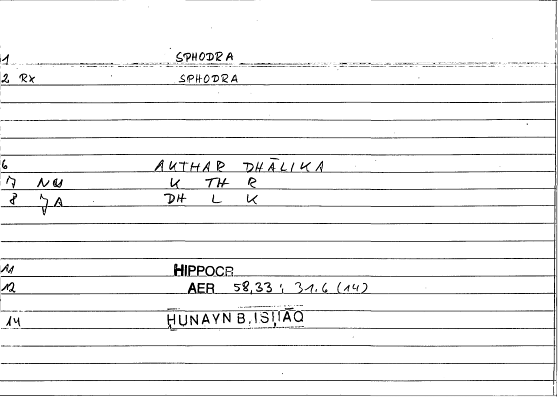 1 SPHODRA
2 RX SPHODRA
6 AKTHAR DHĀLIKA
7 NU K TH R
8 JA DH L K
11 HIPPOCR
12 AER 58,33 ; 31.6 (14)
14 ḤUNAYN B. ISḤĀQ